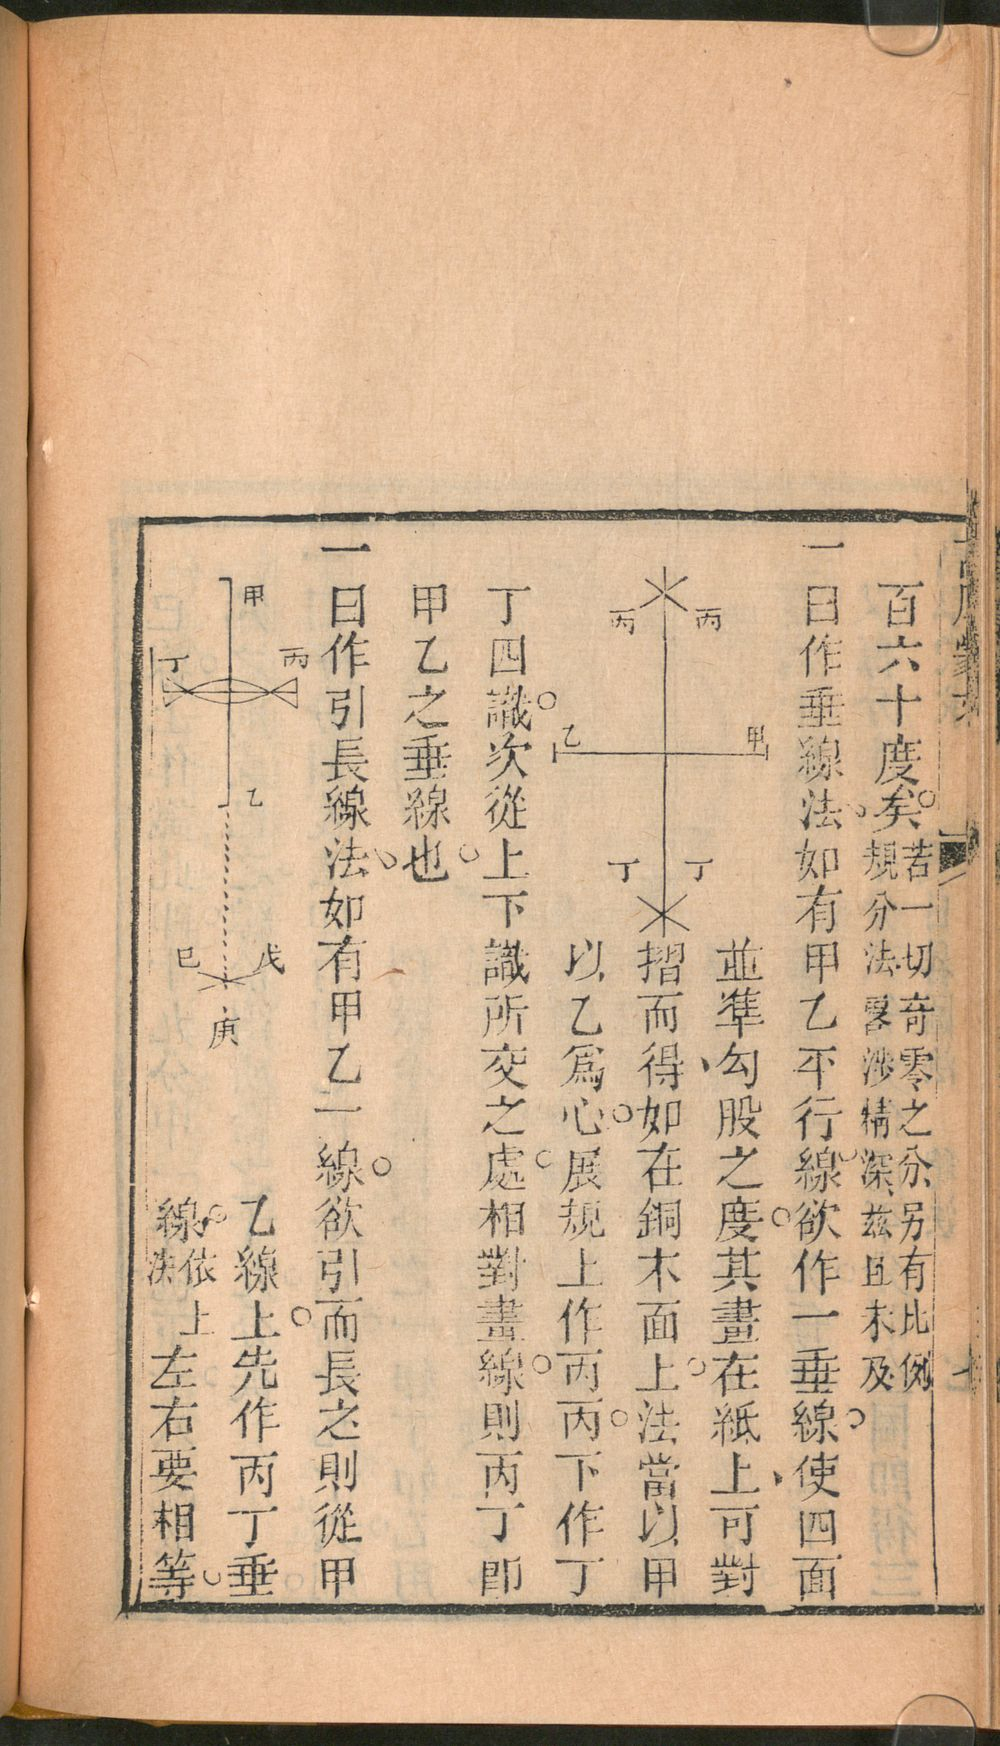 百六十度矣若一切奇零之分另有比例
規分法畧涉精深茲且未及
一曰作垂線法如有甲乙平行線欲作一垂線使四面
並準勾股之度其畫在紙上可對
摺而得如在銅木面上法當以甲
以乙爲心展規上作丙丙下作丁
丙 丙
甲
乙
丁 丁
丁四識次從上下識所交之處相對畫線則丙丁即
甲乙之垂線也
一曰作引長線法如有甲乙一線欲引而長之則從甲
乙線上先作丙丁垂
線依上
法
左右要相等
甲
丙
丁
乙
戊
巳
庚